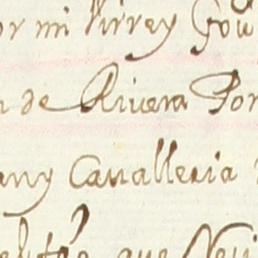 or mi Virrey Gou
n de Riuera Por
any Caualleria
que